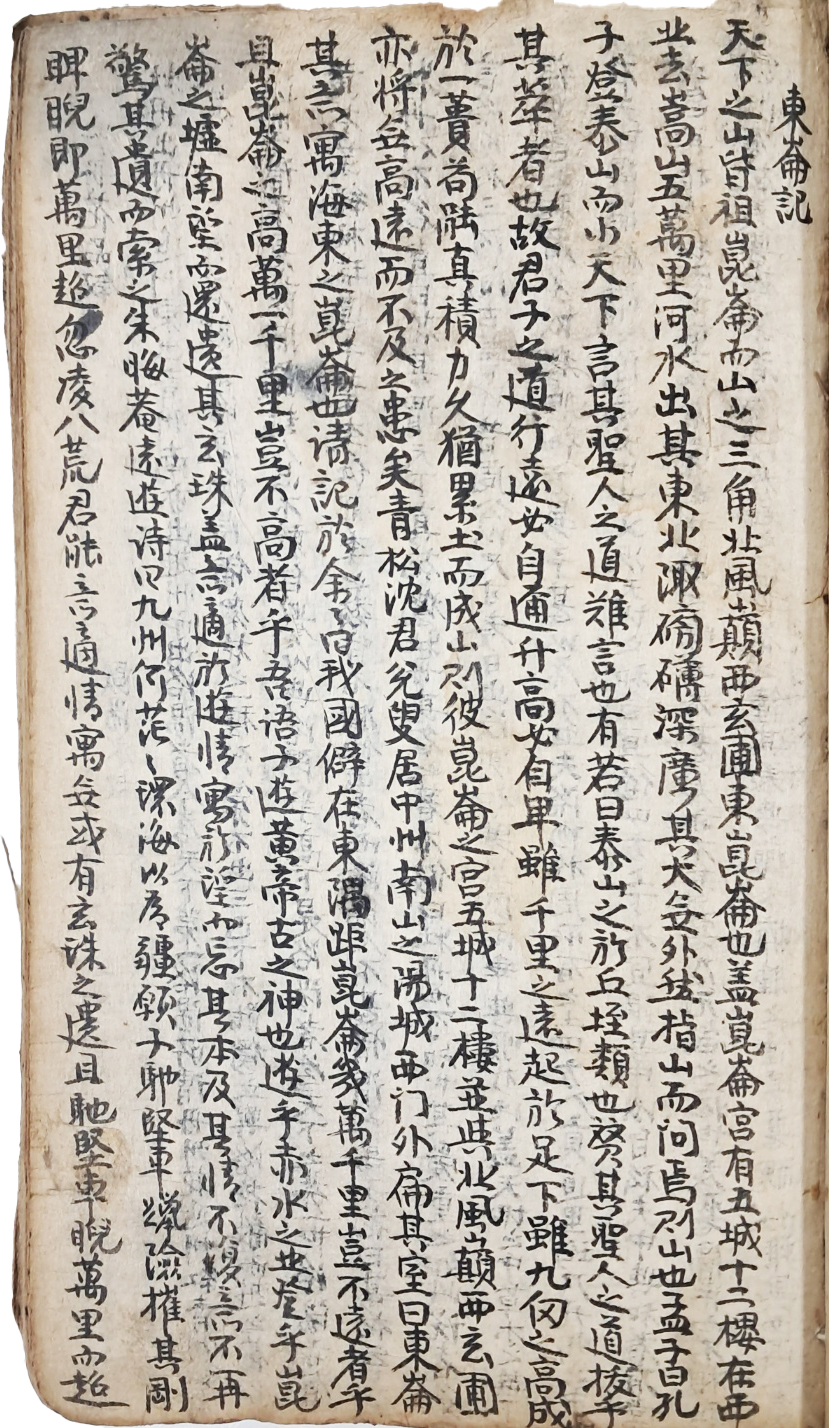 東崙記
天下之山皆祖崑崙而山之三角北風巔西玄圃東崑崙也盖崑崙宮有五城十二樓在西
北去嵩山五萬里河水出其東北陬磅礴深廣其大無外然指山而問焉則山也孟子曰孔
子登泰山而小天下言其聖人之道難言也有若曰泰山之於丘垤類也贊其聖人之道拔乎
其萃者也故君子之道行遠必自邇升高必自卑雖千里之遠起於足下雖九仞之高成
於一蕢苟能真積力久猶累土而成山則彼崑崙之宮五城十二樓並與北風巔西玄圃
亦將無高遠而不及之患矣青松沈君允叟居中州南山之陽城西门外扁其室曰東崙
其言寓海東之崑崙也請記於余余曰我國僻在東隅距崑崙幾萬千里豈不遠者乎
且崑崙之高萬一千里豈不高者乎吾語子遊黃帝古之神也遊乎赤水之北登乎崑
崙之墟南望而還遺其玄珠盖言適於遊情寓於望而忘其本及其情不復言不再
驚其遺而索之朱晦菴遠遊詩曰九州何茫々環海以爲疆願子馳堅車躐險摧其剛
睥睨即萬里超忽凌八荒君能言適情寓無或有玄珠之遺且馳堅車睨萬里而超